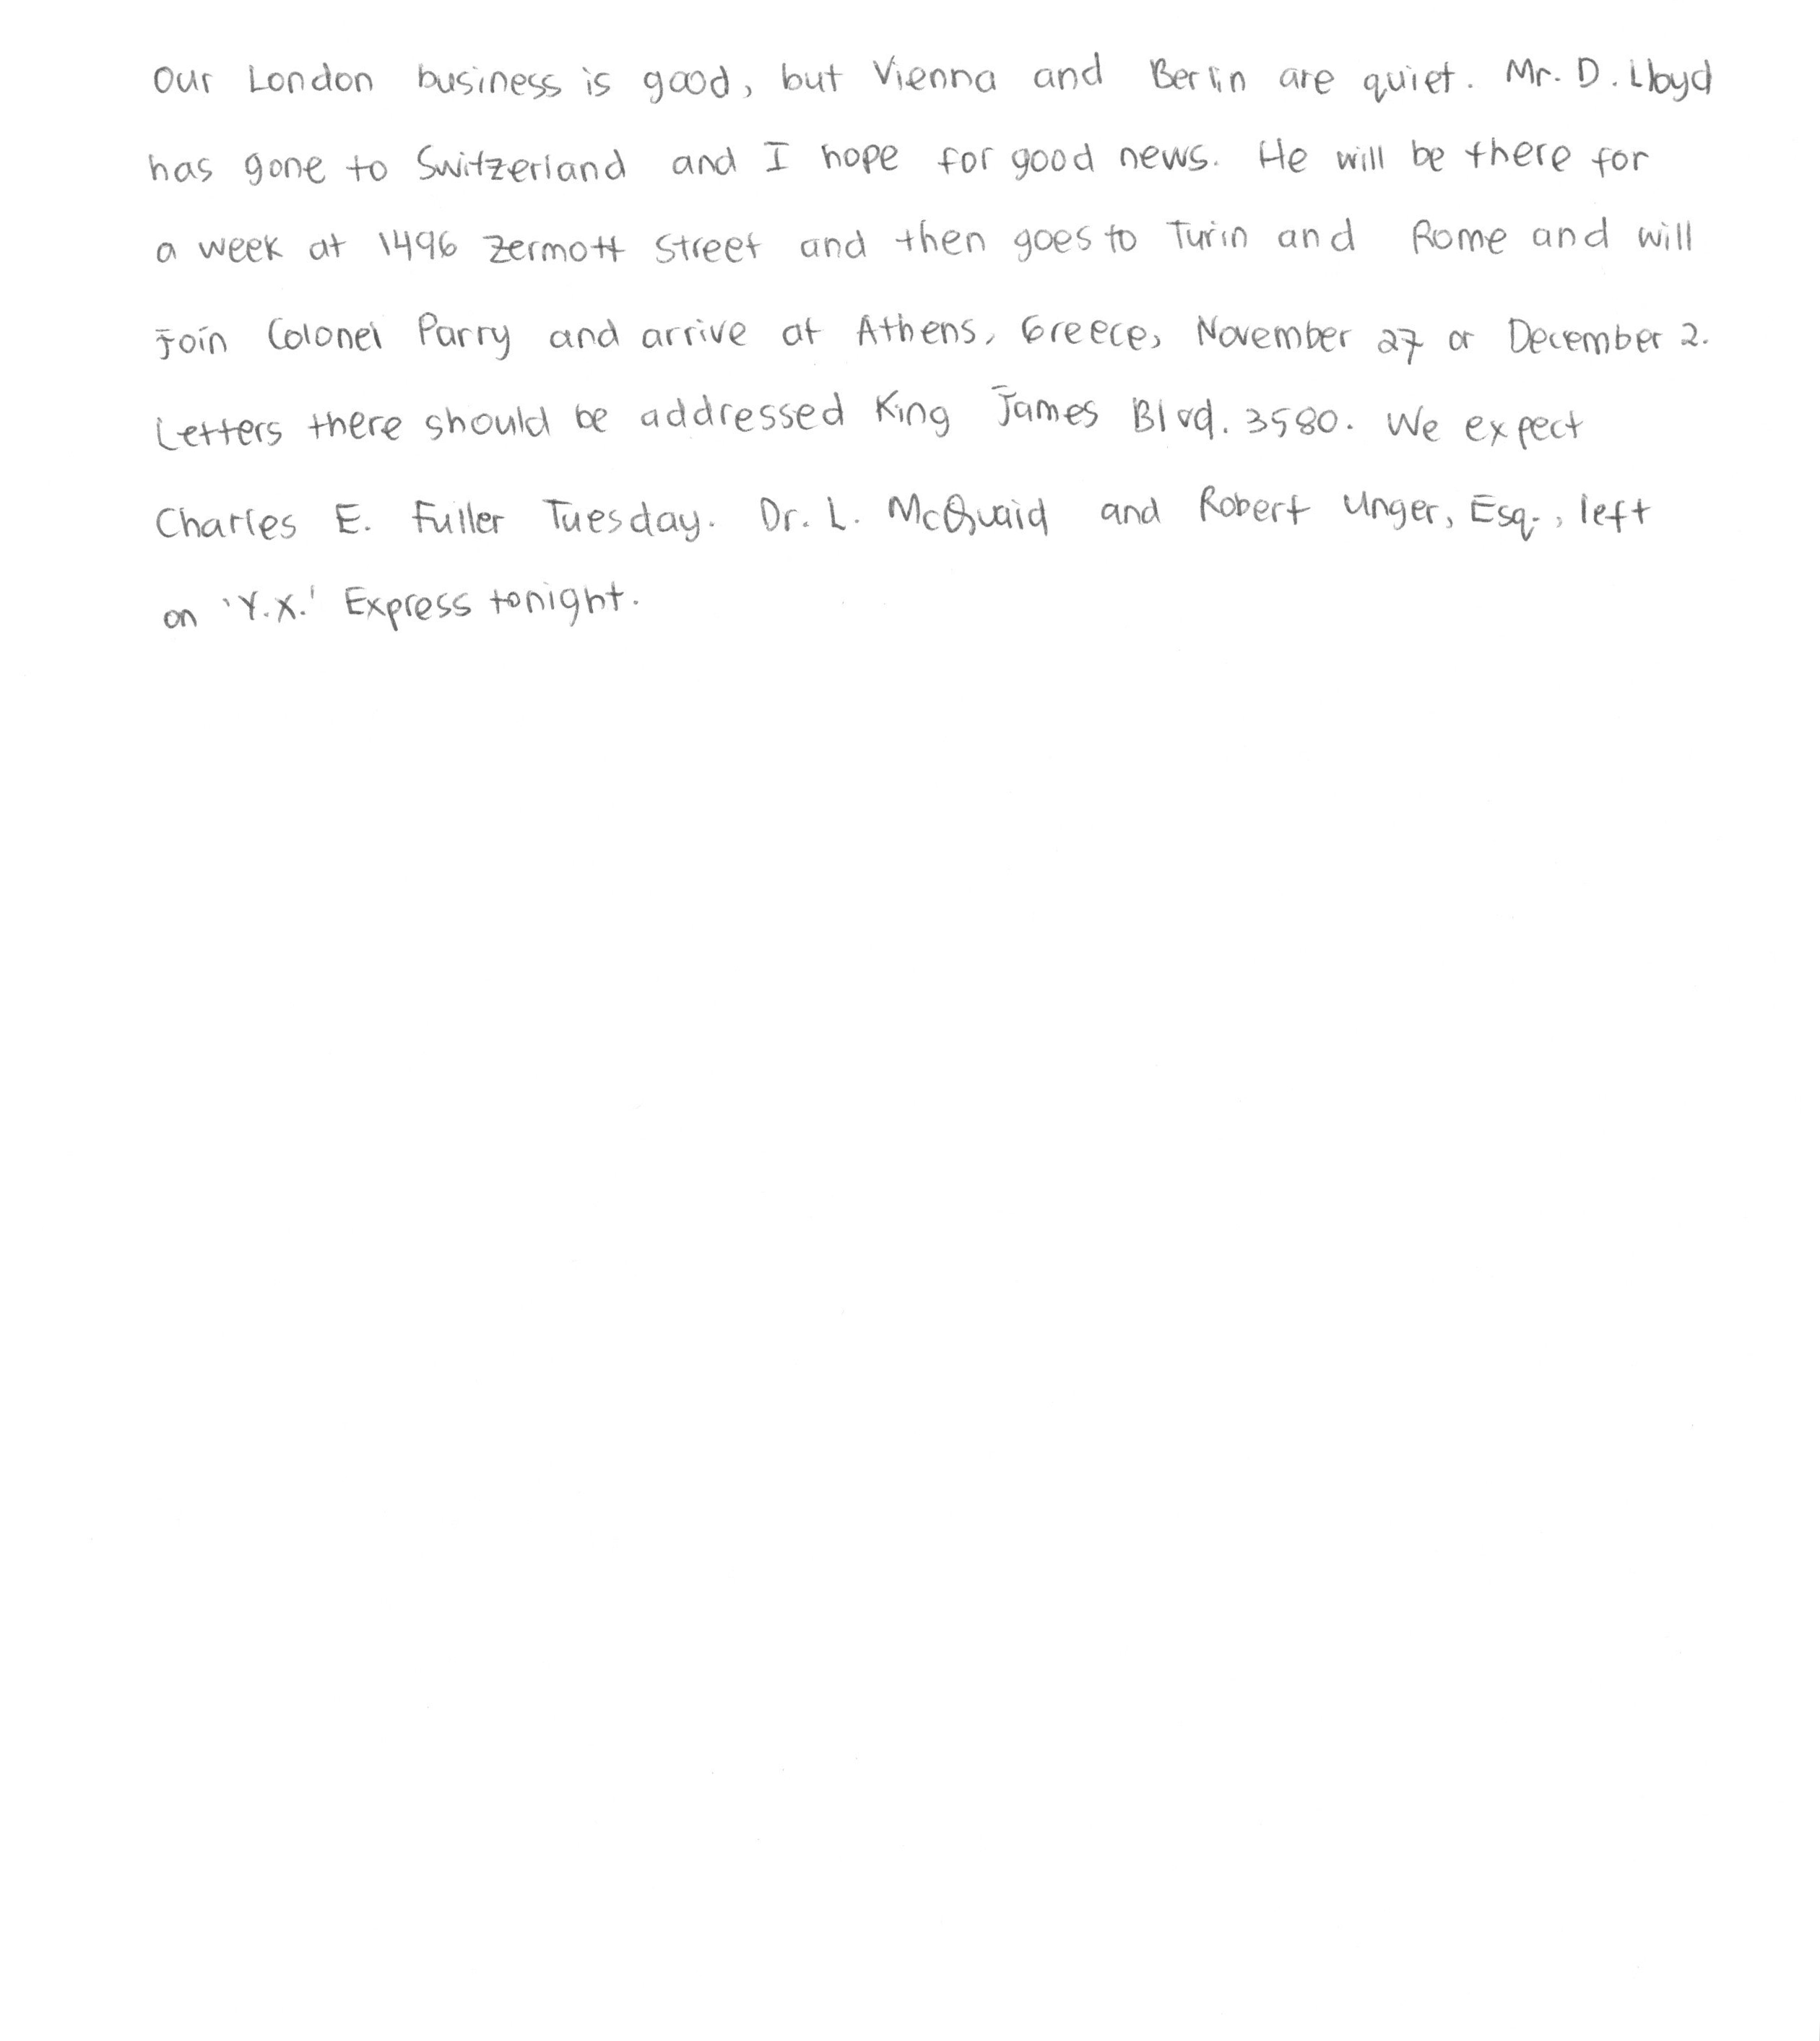 Our London business is good, but Vienna and Berlin are quiet. Mr. D. Lloyd
has gone to Switzerland and I hope for good news. He will be there for
a week at 1496 Zermott Street and then goes to Turin and Rome and will
join Colonel Parry and arrive at Athens, Greece, November 27 or December 2.
Letters there should be addressed King James Blvd. 3580. We expect
Charles E. Fuller Tuesday. Dr. L. McQuaid and Robert Unger, Esq., left
on 'Y.X.' Express tonight.